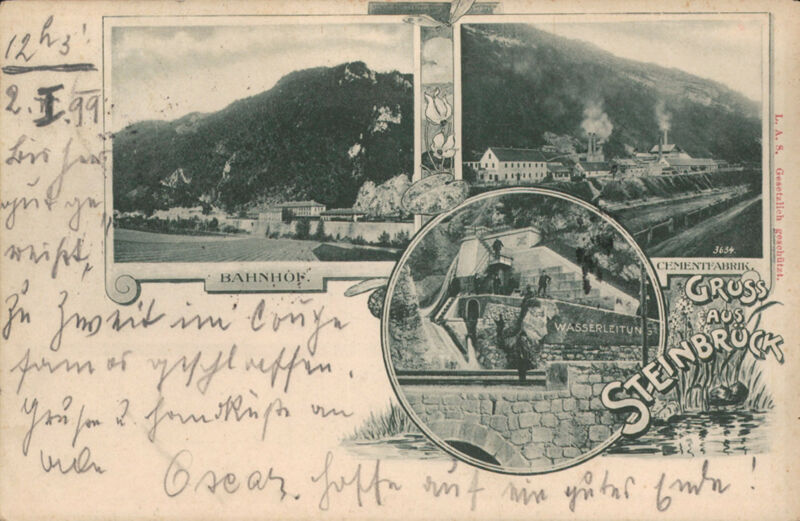 12h 3'
2. I. 99.
Bis her
gut ge
reist,
Zu Zweit im Coupe
famos geschlaffen.
Grüße u. Handküße an
alle
Oscar. hoffe auf ein gutes Ende!
BAHNHOF
CEMENTFABRIK.
3634.
WASSERLEITUNG
GRUSS
AUS
STEINBRÜCK
L. A. S. Gesetzlich geschützt.